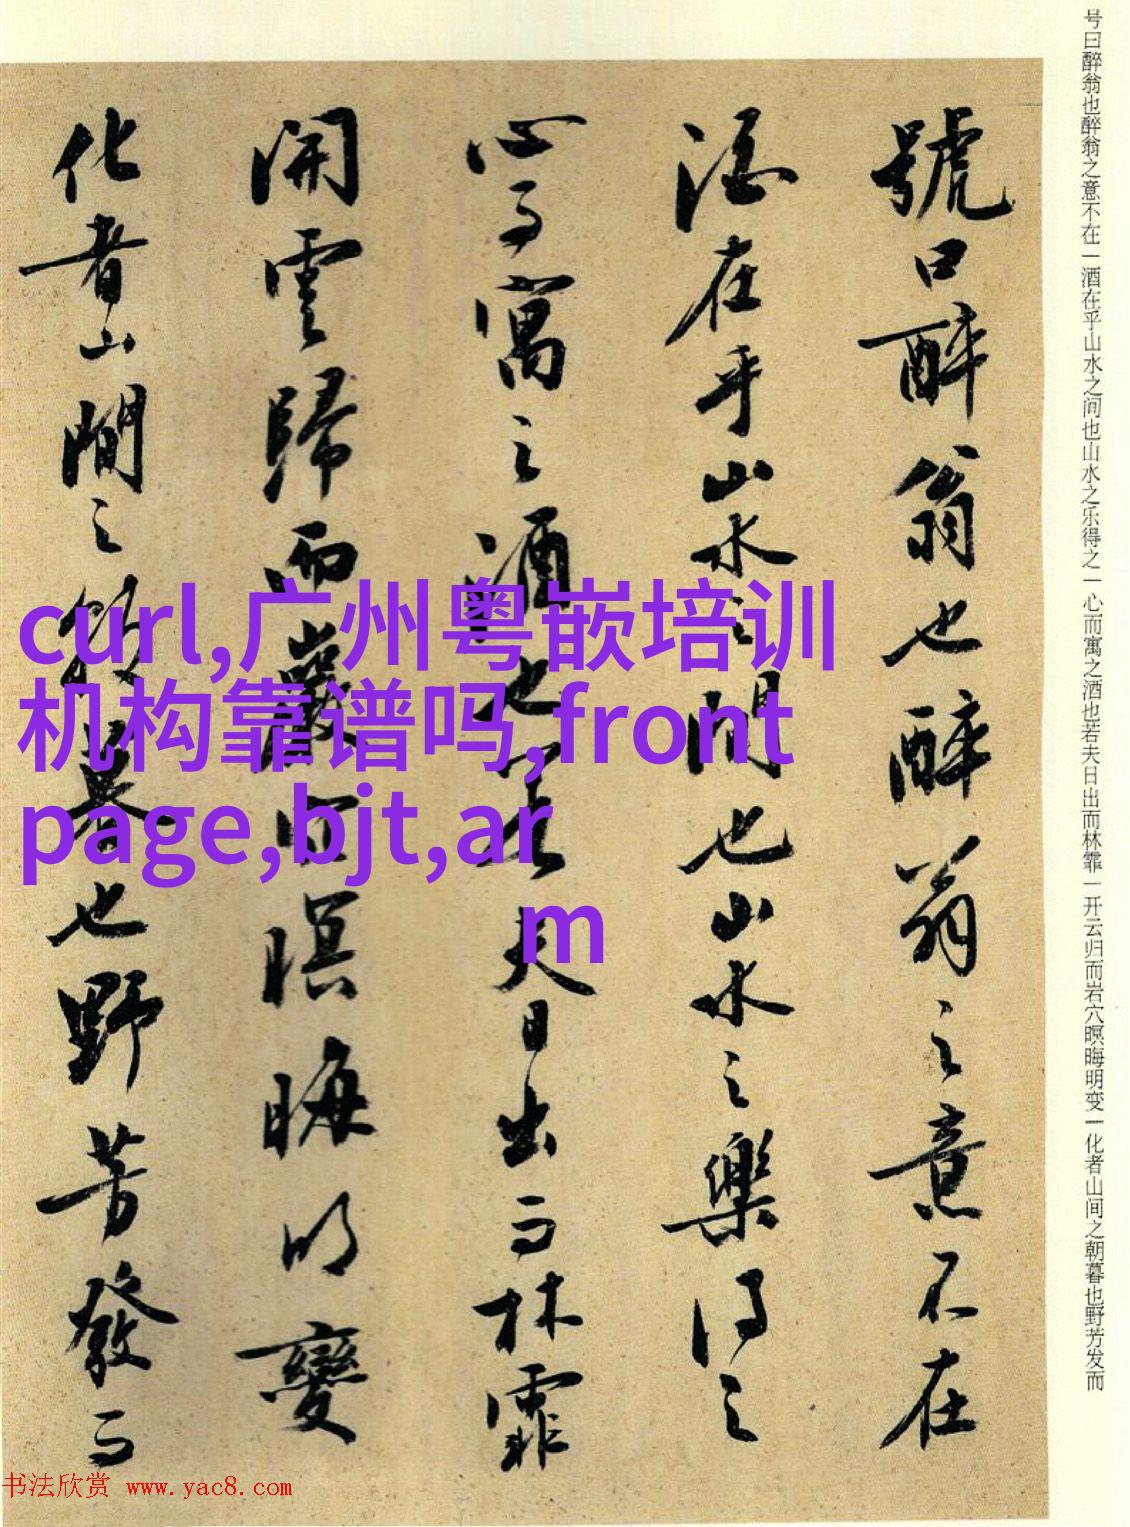 號曰醉翁也醉翁之意不在
酒在乎山水之間也山水之樂得之
心而寓之酒也若夫日出而林霏
開雲歸而巖穴暝晦明變
化者山間之朝暮也野芳發而
号曰醉翁也醉翁之意不在一酒在乎山水之间也山水之乐得之一心而寓之酒也若夫日出而林霏一开云归而岩穴暝晦明变一化者山间之朝暮也野芳发而
curl,广州粤嵌培训
机构靠谱吗,front
page,bjt,ar
m
书法欣赏 www.yac8.com